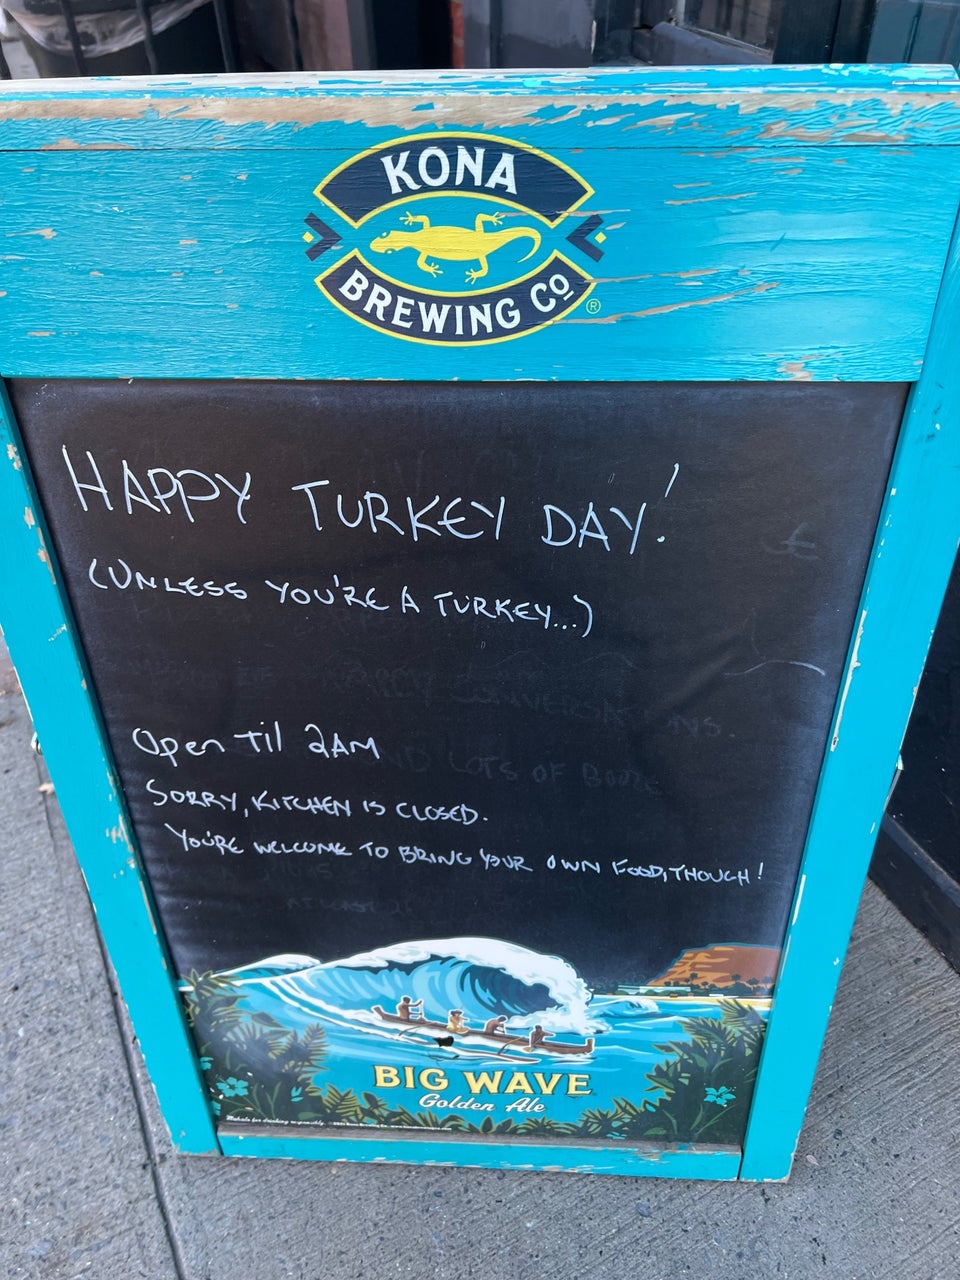 KONA
BREWING CO
®
HAPPY TURKEY DAY!
(UNLESS YOU'RE A TURKEY...)
Open Til 2AM
SORRY, KITCHEN IS CLOSED.
YOU'RE WELCOME TO BRING YOUR OWN FOOD, THOUGH!
BIG WAVE
Golden Ale